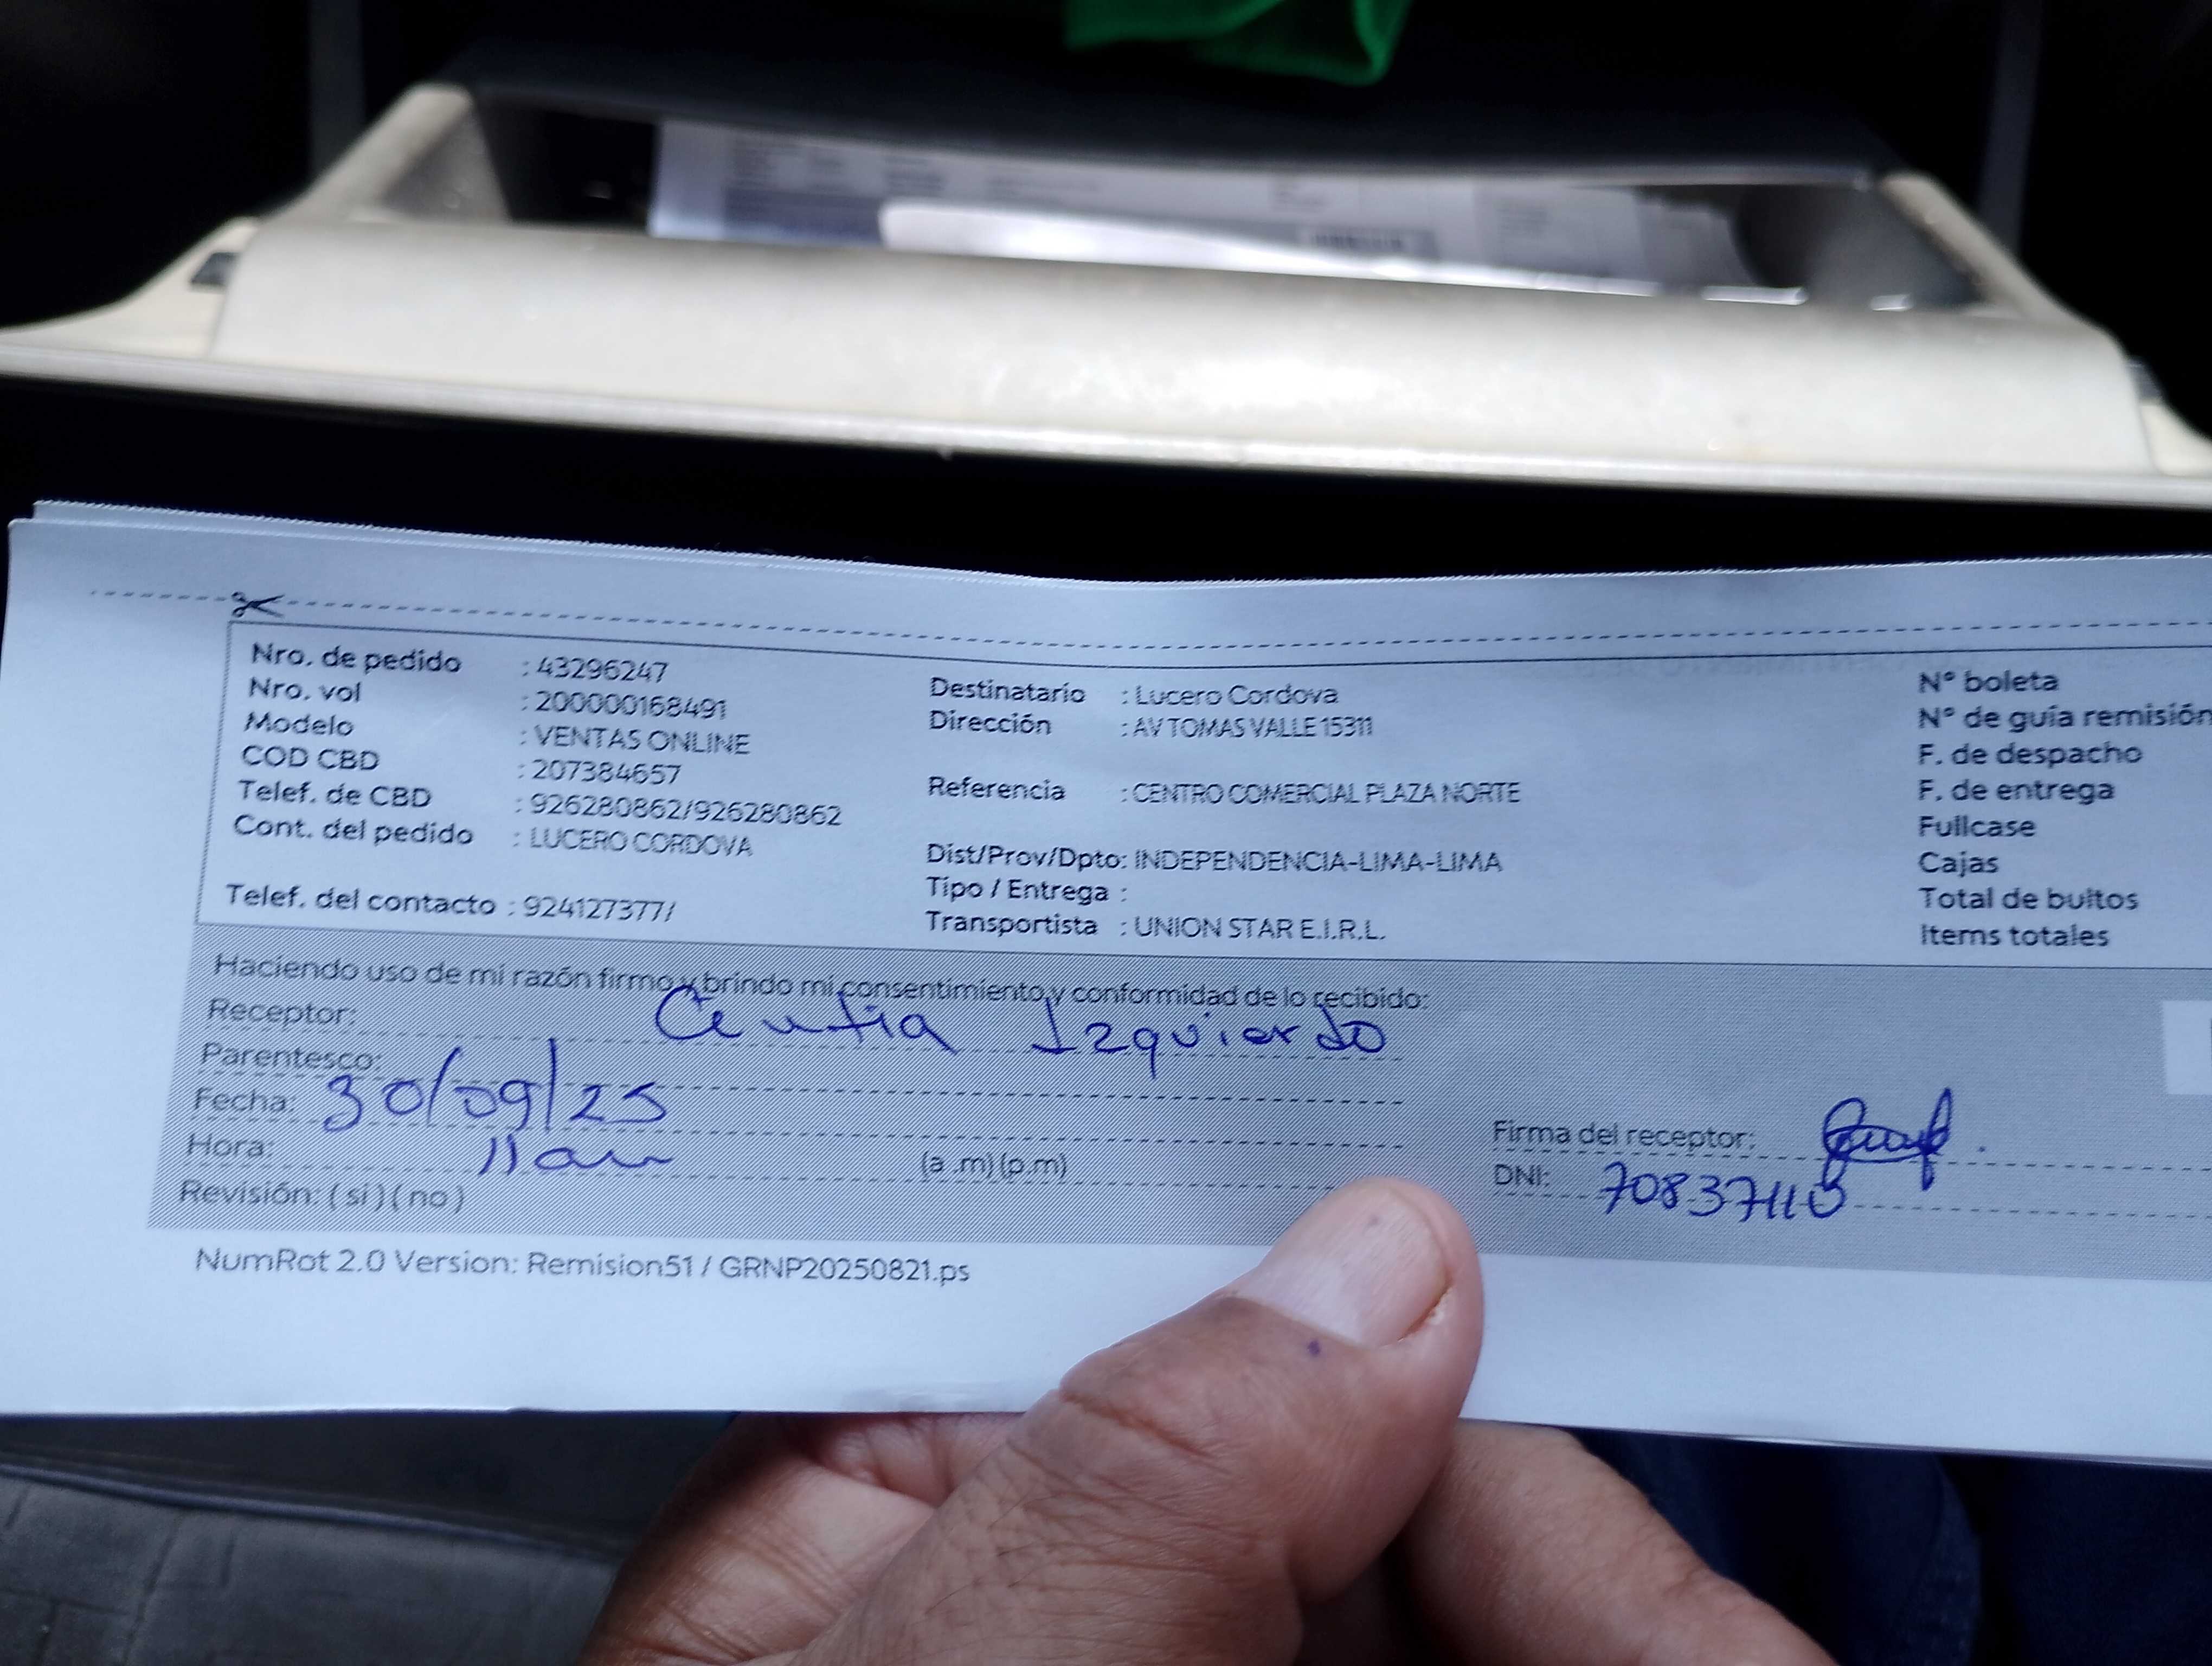 Nro. de pedido : 43296247
Nro. vol : 200000168491
Modelo : VENTAS ONLINE
COD CBD : 207384657
Telef. de CBD : 926280862/926280862
Cont. del pedido : LUCERO CORDOVA
Telef. del contacto : 924127377/
Destinatario : Lucero Cordova
Dirección : AV TOMAS VALLE 15311
Referencia : CENTRO COMERCIAL PLAZA NORTE
Dist/Prov/Dpto: INDEPENDENCIA-LIMA-LIMA
Tipo / Entrega :
Transportista : UNION STAR E.I.R.L.
N° boleta
N° de guia remisión
F. de despacho
F. de entrega
Fullcase
Cajas
Total de bultos
Items totales
Haciendo uso de mi razón firmo y brindo mi consentimiento y conformidad de lo recibido:
Receptor: Cintia Izquierdo
Parentesco:
Fecha: 30/09/25
Hora: 11am (a .m) (p.m)
Revisión: ( si ) ( no )
Firma del receptor:
DNI:
NumRot 2.0 Version: Remision51 / GRNP20250821.ps